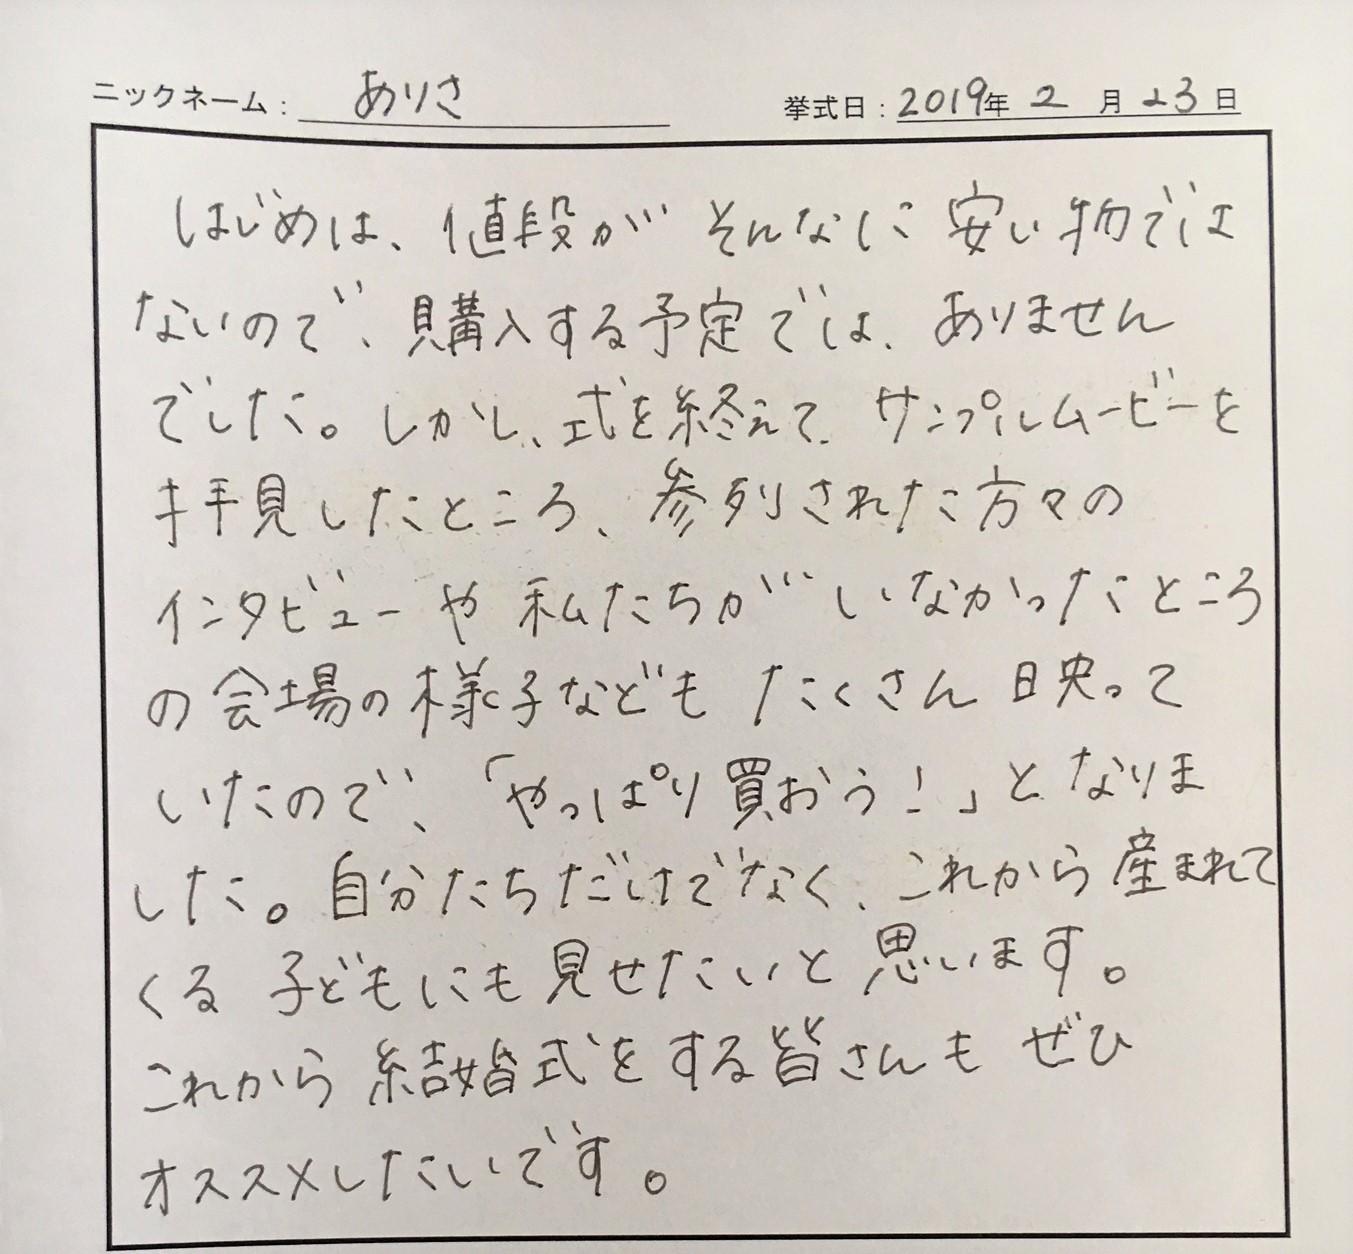 ニックネーム： ありさ 挙式日：2019年 2 月 23 日
はじめは、値段が そんなに 安い物では
ないので、購入する予定では、ありません
でした。しかし、式を終えて、サンプルムービーを
拝見したところ、参列された方々の
インタビューや 私たちが いなかったところ
の会場の様子なども たくさん 映って
いたので、「やっぱり買おう！」となりま
した。自分たちだけでなく、これから産まれて
くる 子どもにも 見せたいと 思います。
これから 結婚式をする皆さんも ぜひ
オススメしたいです。